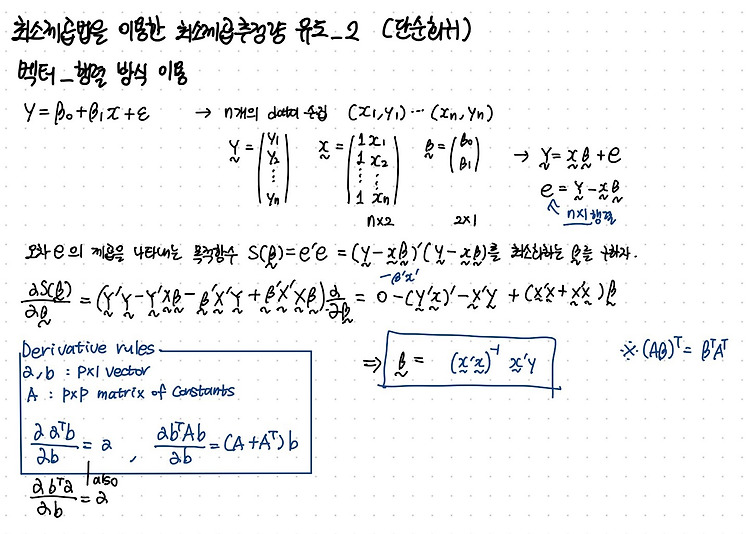 최소제곱법을 이용한 최소제곱추정량 유도_2 (단순회귀)
벡터_행렬 방식 이용
Y = β₀ + β₁x + ε → n개의 data 수집 (x₁, y₁) ⋯ (xₙ, yₙ)
Y = (y₁ y₂ ⋮ yₙ) x = (1 x₁ 1 x₂ ⋮ ⋮ 1 xₙ) β = (β₀ β₁) → Y = xβ + e
e = Y - xβ
n×2 2×1 n×1 행렬
오차 e의 제곱을 나타내는 목적함수 S(β) = e'e = (Y - xβ)'(Y - xβ)를 최소화하는 β를 구하자.
-β'x'
∂S(β)/∂β = (Y'Y - Y'xβ - β'x'Y + β'x'xβ) ∂/∂β = 0 - (Y'x)' - x'Y + (x'x + x'x)β
Derivative rules
a, b : p×1 vector
A : p×p matrix of constants
⇒ β = (x'x)⁻¹ x'Y
※ (AB)ᵀ = BᵀAᵀ
∂aᵀb/∂b = a , ∂bᵀAb/∂b = (A + Aᵀ)b
also
∂bᵀa/∂b = a